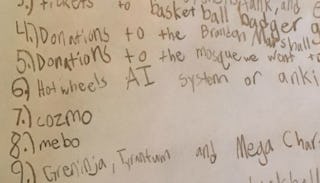 3.) Tickets to basketball badger
4.) Donations to the Brandon Marshall
5.) Donations to the mosque we went to
6.) Hot wheels AI system or anki
7.) cozmo
8.) mebo
9.) Greninja, Tyrantum and Mega Char